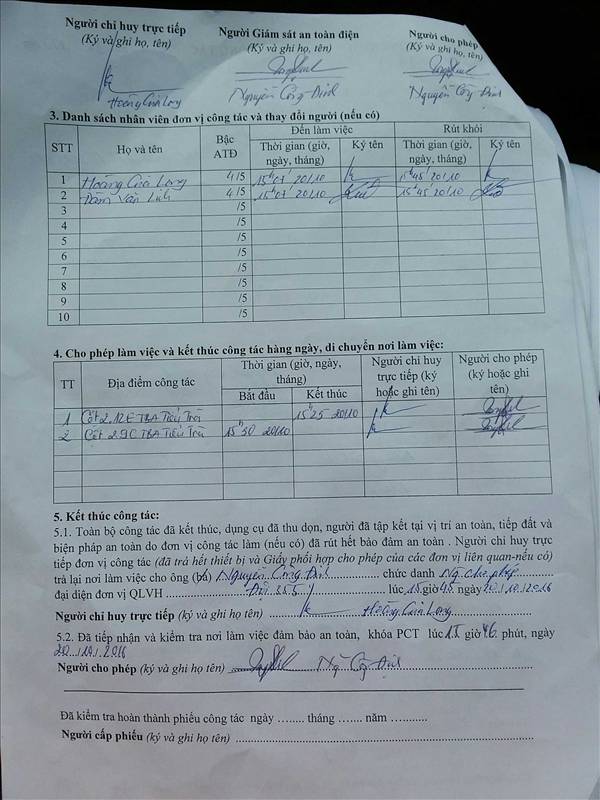 Người chỉ huy trực tiếp Người Giám sát an toàn điện Người cho phép
(Ký và ghi họ, tên) (Ký và ghi họ, tên) (Ký và ghi họ, tên)
Hoàng Gia Long Nguyễn Công Định Nguyễn Công Định
3. Danh sách nhân viên đơn vị công tác và thay đổi người (nếu có)
STT Họ và tên Bậc ATĐ Đến làm việc Rút khỏi
Thời gian (giờ, ngày, tháng) Ký tên Thời gian (giờ, ngày, tháng) Ký tên
1 Hoàng Gia Long 4/5 15h07' 20/10 15h45' 20/10
2 Đàm Văn Linh 4/5 15h07' 20/10 15h45' 20/10
3 /5
4 /5
5 /5
6 /5
7 /5
8 /5
9 /5
10 /5
4. Cho phép làm việc và kết thúc công tác hàng ngày, di chuyển nơi làm việc:
TT Địa điểm công tác Thời gian (giờ, ngày, tháng) Người chỉ huy trực tiếp (ký hoặc ghi tên) Người cho phép (ký hoặc ghi tên)
Bắt đầu Kết thúc
1 Cột 2.12E TBA Tiểu Trà 15h25 20/10
2 Cột 2.9C TBA Tiểu Trà 15h30 20/10
5. Kết thúc công tác:
5.1. Toàn bộ công tác đã kết thúc, dụng cụ đã thu dọn, người đã tập kết tại vị trí an toàn, tiếp đất và
biện pháp an toàn do đơn vị công tác làm (nếu có) đã rút hết bảo đảm an toàn . Người chỉ huy trực
tiếp đơn vị công tác (đã trả hết thiết bị và Giấy phối hợp cho phép của các đơn vị liên quan-nếu có)
trả lại nơi làm việc cho ông (bà) Nguyễn Công Định chức danh Ng cho phép
đại diện đơn vị QLVH lúc 15 giờ 45 ngày 20/10/2016
Người chỉ huy trực tiếp (ký và ghi họ tên) Hoàng Gia Long
5.2. Đã tiếp nhận và kiểm tra nơi làm việc đảm bảo an toàn, khóa PCT lúc 15 giờ 46 phút, ngày
20/10/2016
Người cho phép (ký và ghi họ tên) Ng Công Định
Đã kiểm tra hoàn thành phiếu công tác ngày ........ tháng ....... năm ...........
Người cấp phiếu (ký và ghi họ tên)